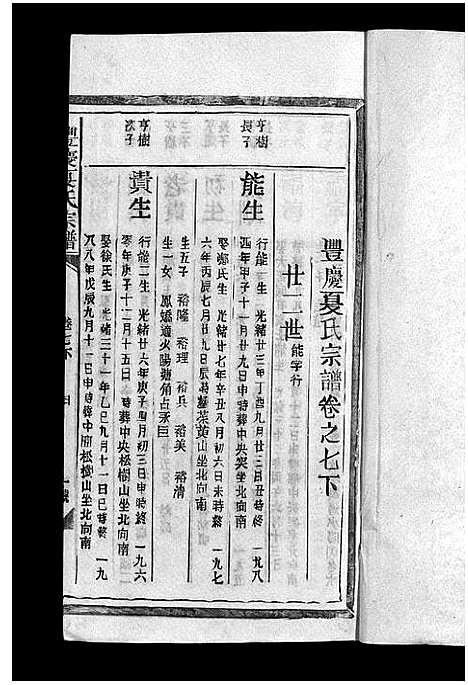 豐慶夏氏宗譜卷之七下
廿二世 能字行
亨樹長子
能生
行能一 生光緒廿三年丁酉九月廿三日丑時終一九八
四年甲子十一月廿九日申時葬中央突坐北向南
娶鄭氏生光緒廿七年辛丑八月初六日未時終一九七
六年丙辰七月廿九日辰時葬茶黄山坐北向南
生五子 裕隆 裕理 裕兵 裕美 裕清
生一女 鳳嬌適火陽塘角占承巨
亨樹次子
貴生
行能二生光緒廿六年庚子四月初三日申時終一九六
零年庚子十二月十五日 時葬中央松樹山坐北向南
娶徐氏生光緒三十一年乙巳九月十一日巳時終一九
八八年戊辰九月十二日申時葬中央松樹山坐北向南
豐慶夏氏宗譜
卷七下